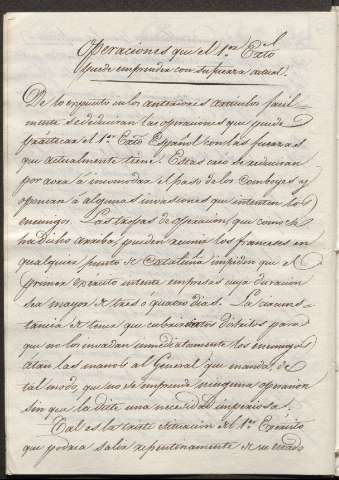 Operaciones que el 1.er Exto
puede emprender con su fuerza actual.
De lo expuesto en los anteriores articulos facil-
mente se deduciran las operaciones que puede
practicar el 1.er Exto Español con las fuerzas
que actualmente tiene. Estas casi se reduciran
por aora á incomodar el paso de los Comboyes y
oponerse á algunas invasiones que intenten los
enemigos. Las tropas de operacion, que como se
ha dicho arriba, pueden reunir los franceses en
qualquier punto de Cataluña impiden que el
primer Exercito intente empresas cuya duracion
sea mayor de tres o quatro dias. La circuns-
tancia de tener que cubrir otros distritos para
que no los invadan inmediatamente los enemigos
atan las manos al General que manda, de
tal modo, que no se emprende ninguna operacion
sin que la dicte una necesidad imperiosa.
Tal es la triste situacion del 1.er Exercito
que podria salir repentinamente de su estado